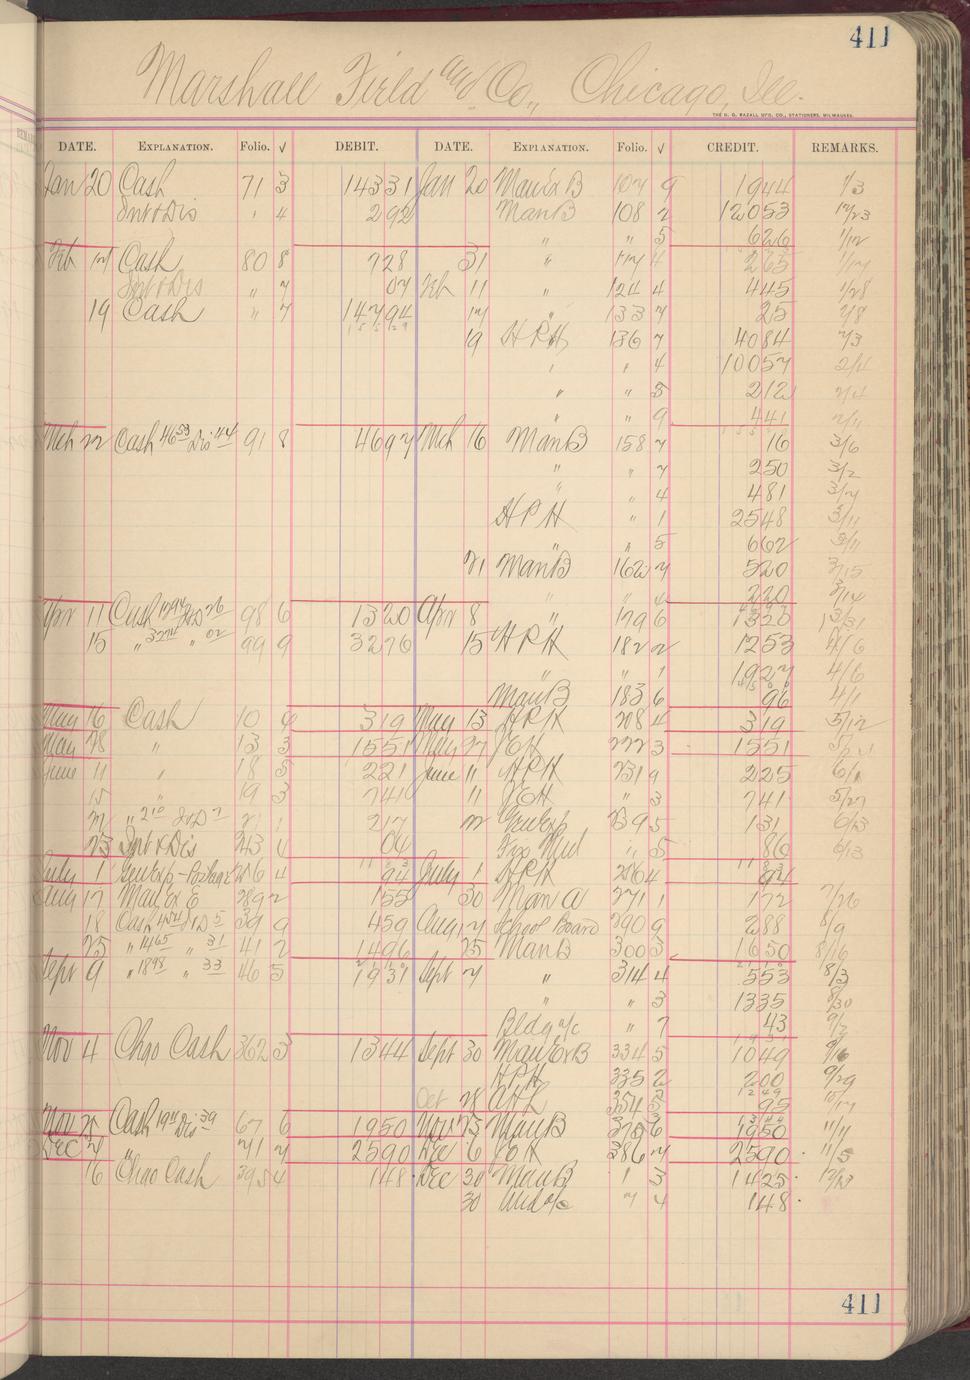 411
Marshall Field and Co., Chicago, Ill.
THE H. G. RAZALL MFG. CO., STATIONERS, MILWAUKEE.
DATE. EXPLANATION. Folio. √ DEBIT. DATE. EXPLANATION. Folio. √ CREDIT. REMARKS.
Jan 20 Cash 71 3 14331 Jan 20 Man Ex B 107 9 1944 1/3
Int & Dis " 4 292 Man B 108 2 12053
" " 5 626 1/12
Feb Cash 80 8 728 31 " " 4 265 1/17
Int & Dis " 7 07 Feb 11 " 124 4 445 1/28
19 Cash " 7 14794 17 " 133 7 25 2/8
19 HPH 136 7 4084 2/3
" " 4 10057 2/4
" " 8 212 2/4
" " 9 441 2/11
Mch 22 Cash 4653 Dis 44 91 8 4697 Mch 16 Man B 158 7 16 3/6
" " 7 250 3/2
" " 4 481 3/7
HPH " 1 2548 3/11
" " 5 662 3/11
21 Man B 162 7 520 3/15
" " 4 220 3/14
Apr 11 Cash 1294 Int D 26 98 6 1320 Apr 8 " 179 6 1320 3/31
15 " 3274 " 02 99 9 3276 15 HPH 182 2 1253 4/6
" " 1 1927 4/6
Man B 183 6 96 4/1
May 16 Cash 10 9 319 May 13 HPH 208 4 319 5/12
May 28 " 13 3 1551 May 27 JEH 222 3 1551
June 11 " 18 5 221 June 11 HPH 231 9 225 6/1
15 " 19 3 741 11 JEH " 3 741 5/27
" 210 Int D 7 1 217 22 Gen Exp 239 5 131 6/13
23 Int & Dis 243 4 04 " 5 86 6/13
July 1 Gen Exp - Postage 256 4 94 July 1 HPH 256 4 94
Aug 17 Man Ex E 289 2 155 30 Man A 271 1 172 7/26
18 Cash 454 Int D 5 39 9 459 Aug 17 School Board 290 9 288 8/9
25 " 1465 " 31 41 2 1496 25 Man B 300 3 1650 8/16
Sept 9 " 1898 " 33 46 5 1931 Sept 7 " 314 4 553 8/3
" " 3 1335 8/30
Bldg a/c " 7 43 9/2
Nov 4 Chgo Cash 362 3 1344 Sept 30 Man Ex B 334 5 1049 9/16
HPH 335 2 200 9/29
Oct 28 354 5 95 10/17
Nov 25 Cash 1911 Dis 39 67 6 1950 Nov 23 Man B 375 6 1950 11/1
Dec 7 " 71 7 2590 Dec 6 JEH 386 7 2590 11/5
16 Chgo Cash 395 4 148 Dec 30 Man B 1 3 1425 12/23
30 7 4 148
411